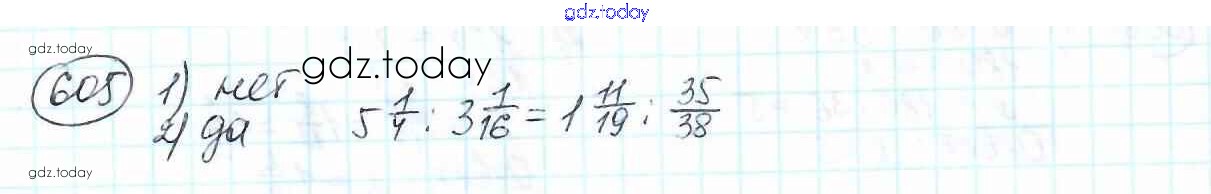 gdz.today
gdz.today
605 1) нет
gdz.today
2) да 5 1/4 : 3 1/16 = 1 11/19 : 35/38
gdz.today